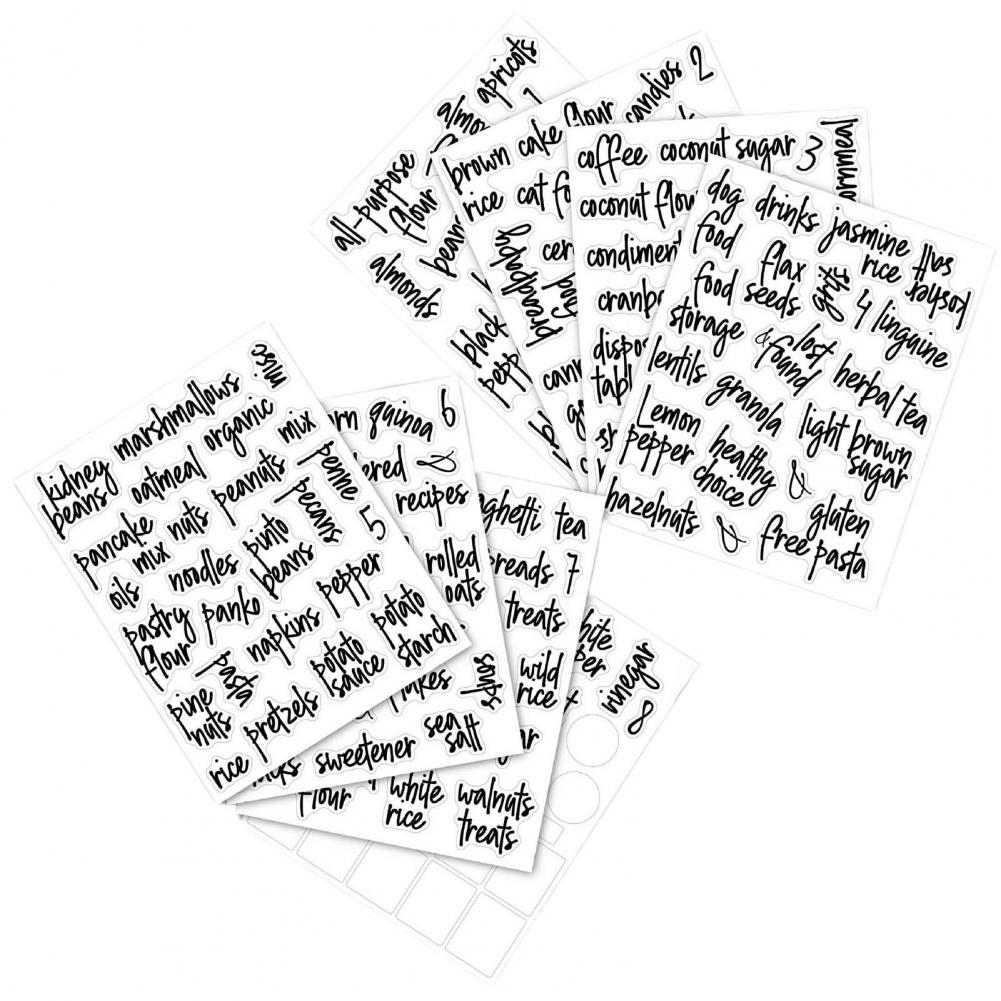 apricots
all-purpose
flour
almonds
black
1
brown
rice
cake flour
candies
2
coffee
coconut sugar
3
oatmeal
condiment
dog
food
drinks
jasmine
rice
kosher
salt
food
storage
flax
seeds
grits
4
linguine
lentils
lost
& found
herbal tea
granola
Lemon
pepper
healthy
choice
light brown
sugar
&
hazelnuts
&
gluten
free pasta
kidney
beans
marshmallows
misc.
oatmeal
organic
mix
pancake
mix
nuts
peanuts
penne
pecans
5
oils
noodles
pinto
beans
pastry
flour
panko
napkins
pepper
pine
nuts
pasta
potato
sauce
potato
starch
rice
pretzels
quinoa
6
&
recipes
rolled
oats
soups
sweetener
sea
salt
tea
7
treats
wild
rice
flour
white
rice
walnuts
treats
vinegar
8